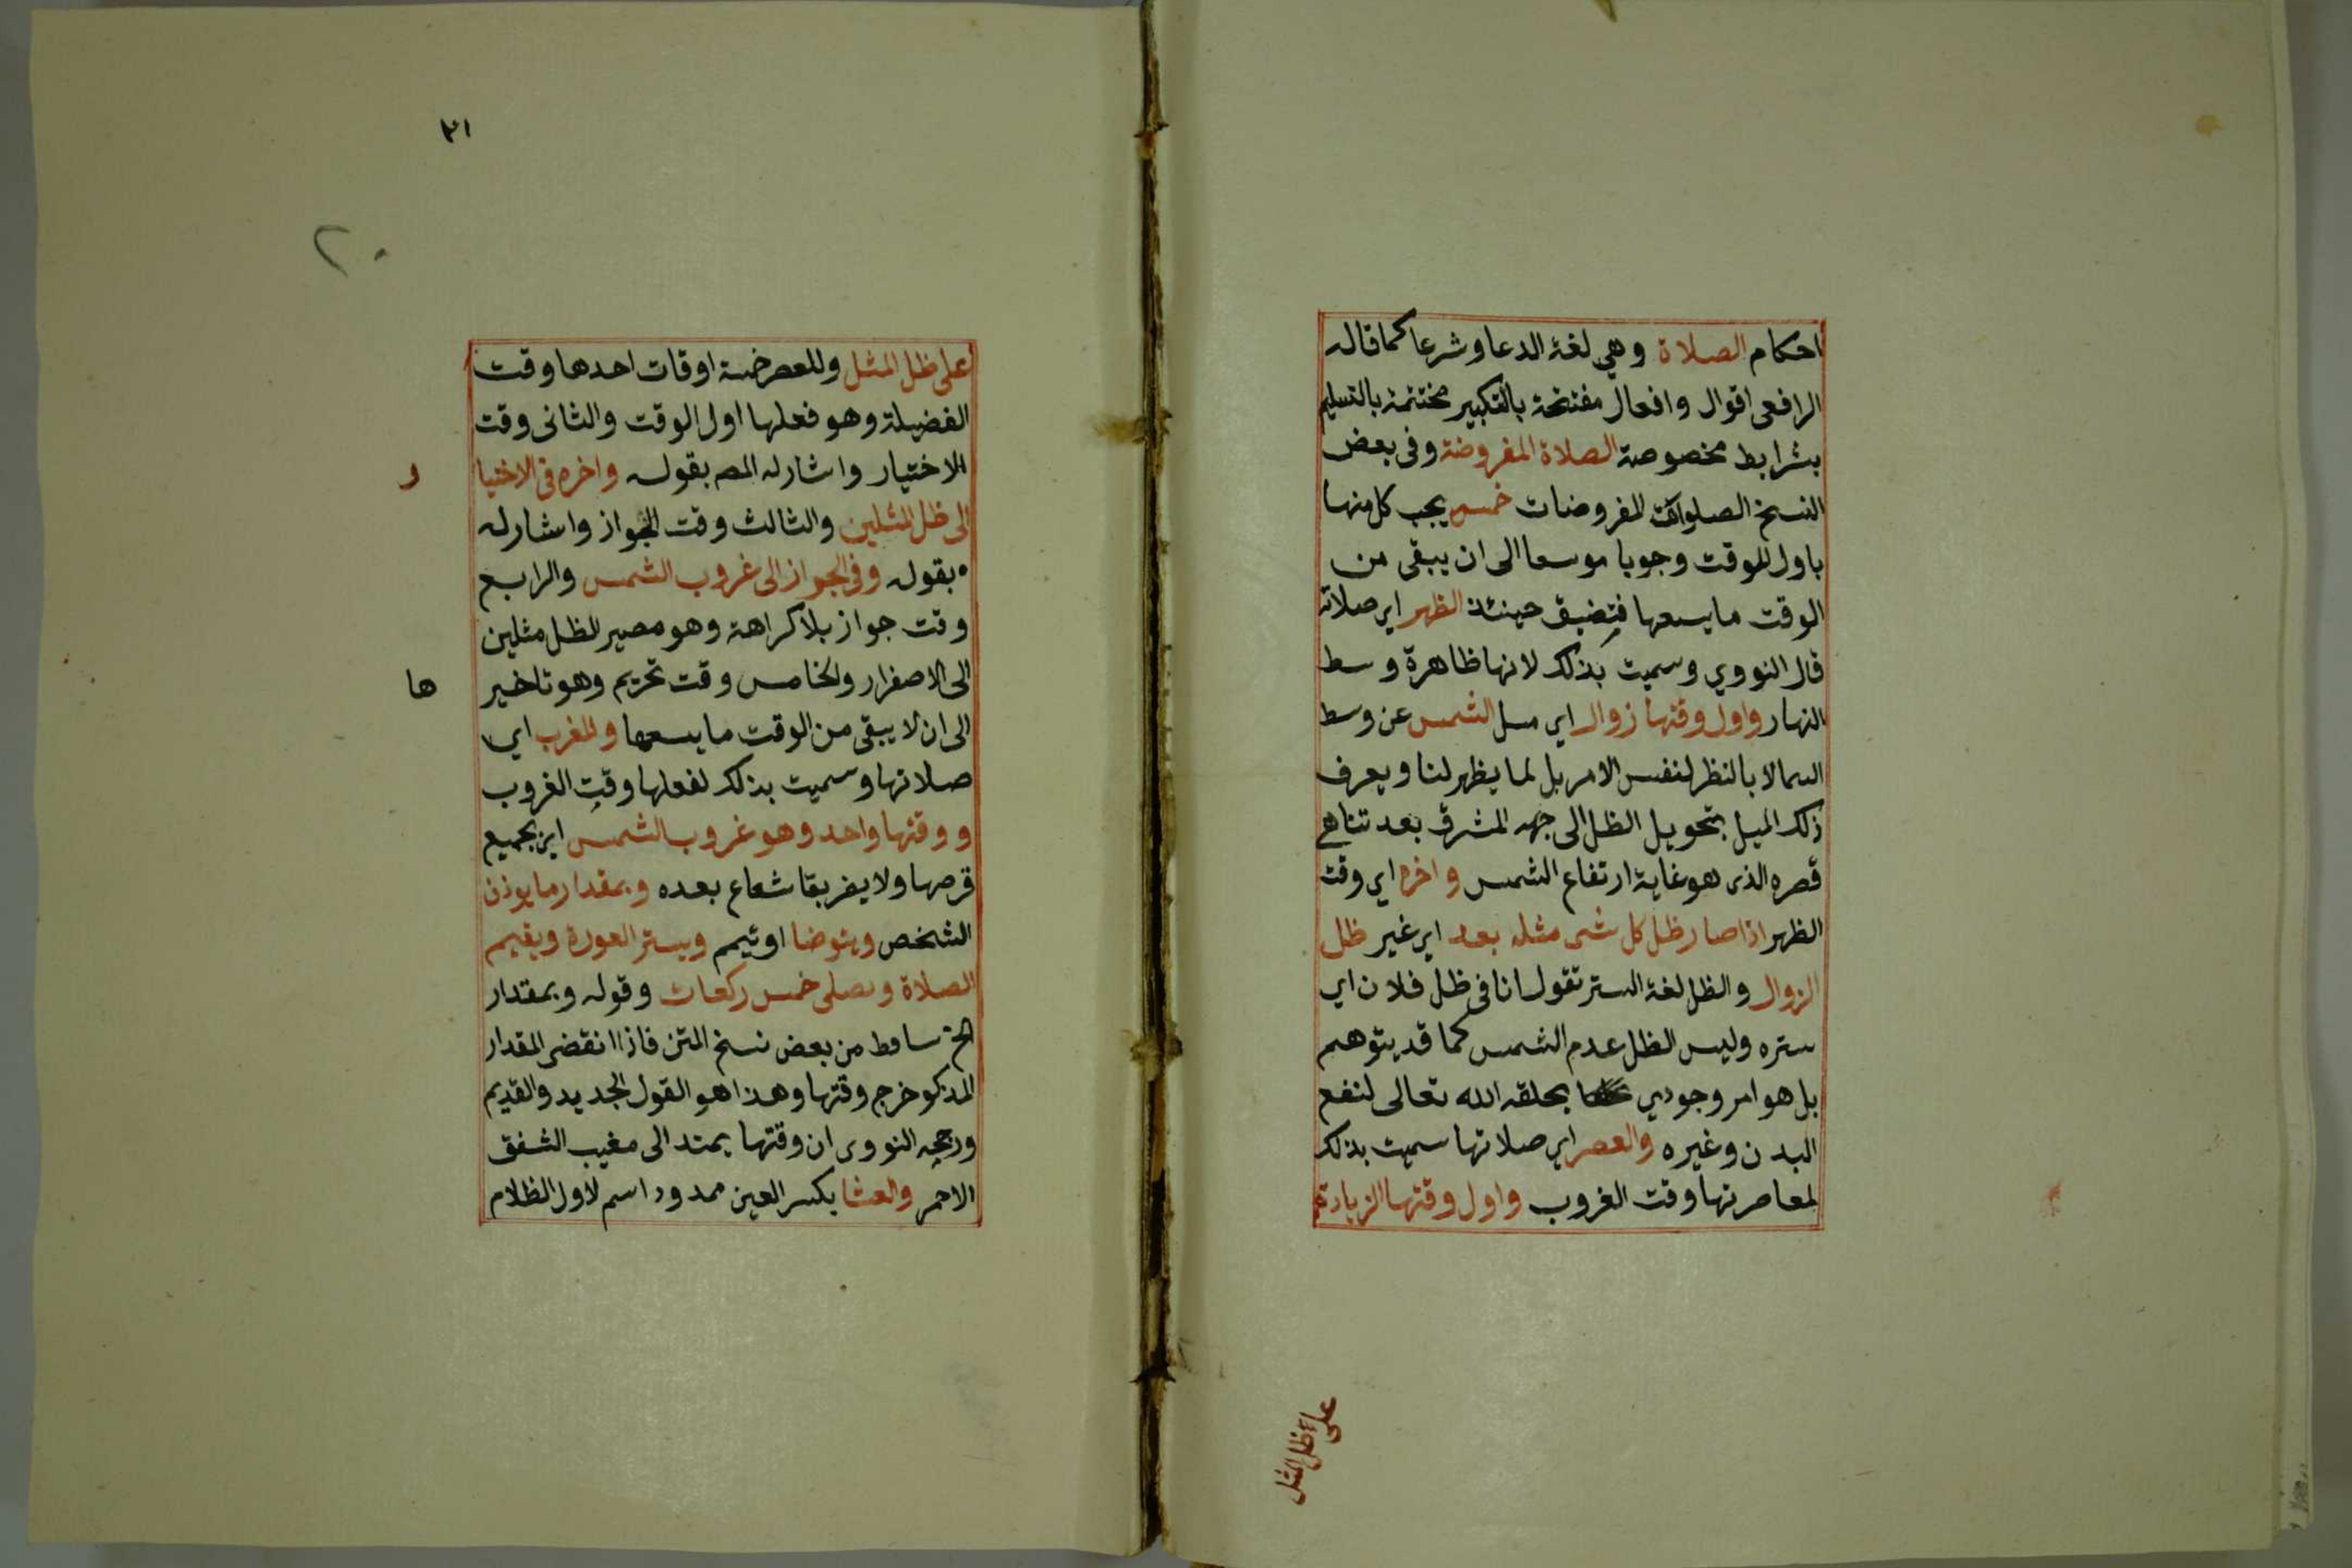 احكام الصلاة وهي لغة الدعا وشرعا كما قاله
الرافعى اقوال وافعال مفتتحة بالتكبير مختتمة بالتسليم
بشرايط مخصوصة الصلاة المفروضة وفى بعض
النسخ الصلوات المفروضات خمس يجب كل منها
باول الوقت وجوبا موسعا الى ان يبقى من
الوقت ما يسعها فيضيق حينئذ الظهر اي صلاته
قال النووي وسميت بذلك لانها ظاهرة وسط
النهار واول وقتها زوال اي ميل الشمس عن وسط
السما لا بالنظر لنفس الامر بل لما يظهر لنا ويعرف
ذلك الميل بتحويل الظل الى جهه المشرق بعد تناهى
قصره الذى هو غاية ارتفاع الشمس واخره اي وقت
الظهر اذا صار ظل كل شى مثله بعد اي غير ظل
الزوال والظل لغة الستر تقول انا فى ظل فلان اي
ستره وليس الظل عدم الشمس كما قد يتوهم
بل هو امر وجودي يخلقه الله تعالى لنفع
البدن وغيره والعصر اي صلاتها سميت بذلك
لمعاصرتها وقت الغروب واول وقتها الزيادة
على ظل المثل
٢١
٢٠
على ظل المثل وللعصر خمسة اوقات احدها وقت
الفضيلة وهو فعلها اول الوقت والثانى وقت
الاختيار واشار له المصـ بقوله واخره فى الاختيا
ر
الى ظل المثلين والثالث وقت الجواز واشار له
بقوله وفى الجواز الى غروب الشمس والرابع
وقت جواز بلا كراهة وهو مصير الظل مثلين
الى الاصفرار والخامس وقت تحريم وهو تاخير
ها
الى ان لا يبقى من الوقت ما يسعها والمغرب اي
صلاتها وسميت بذلك لفعلها وقت الغروب
ووقتها واحد وهو غروب الشمس اي بجميع
قرصها ولا يضر بقا شعاع بعده وبمقدار ما يوذن
الشخص ويتوضا او يتيمم ويستر العورة ويقيم
الصلاة ويصلى خمس ركعات وقوله وبمقدار
الخ ساقط من بعض نسخ المتن فاذا انقضى المقدار
المذكو خرج وقتها وهذا هو القول الجديد والقديم
ورجحه النووى ان وقتها يمتد الى مغيب الشفق
الاحمر والعشا بكسر العين ممدودا اسم لاول الظلام